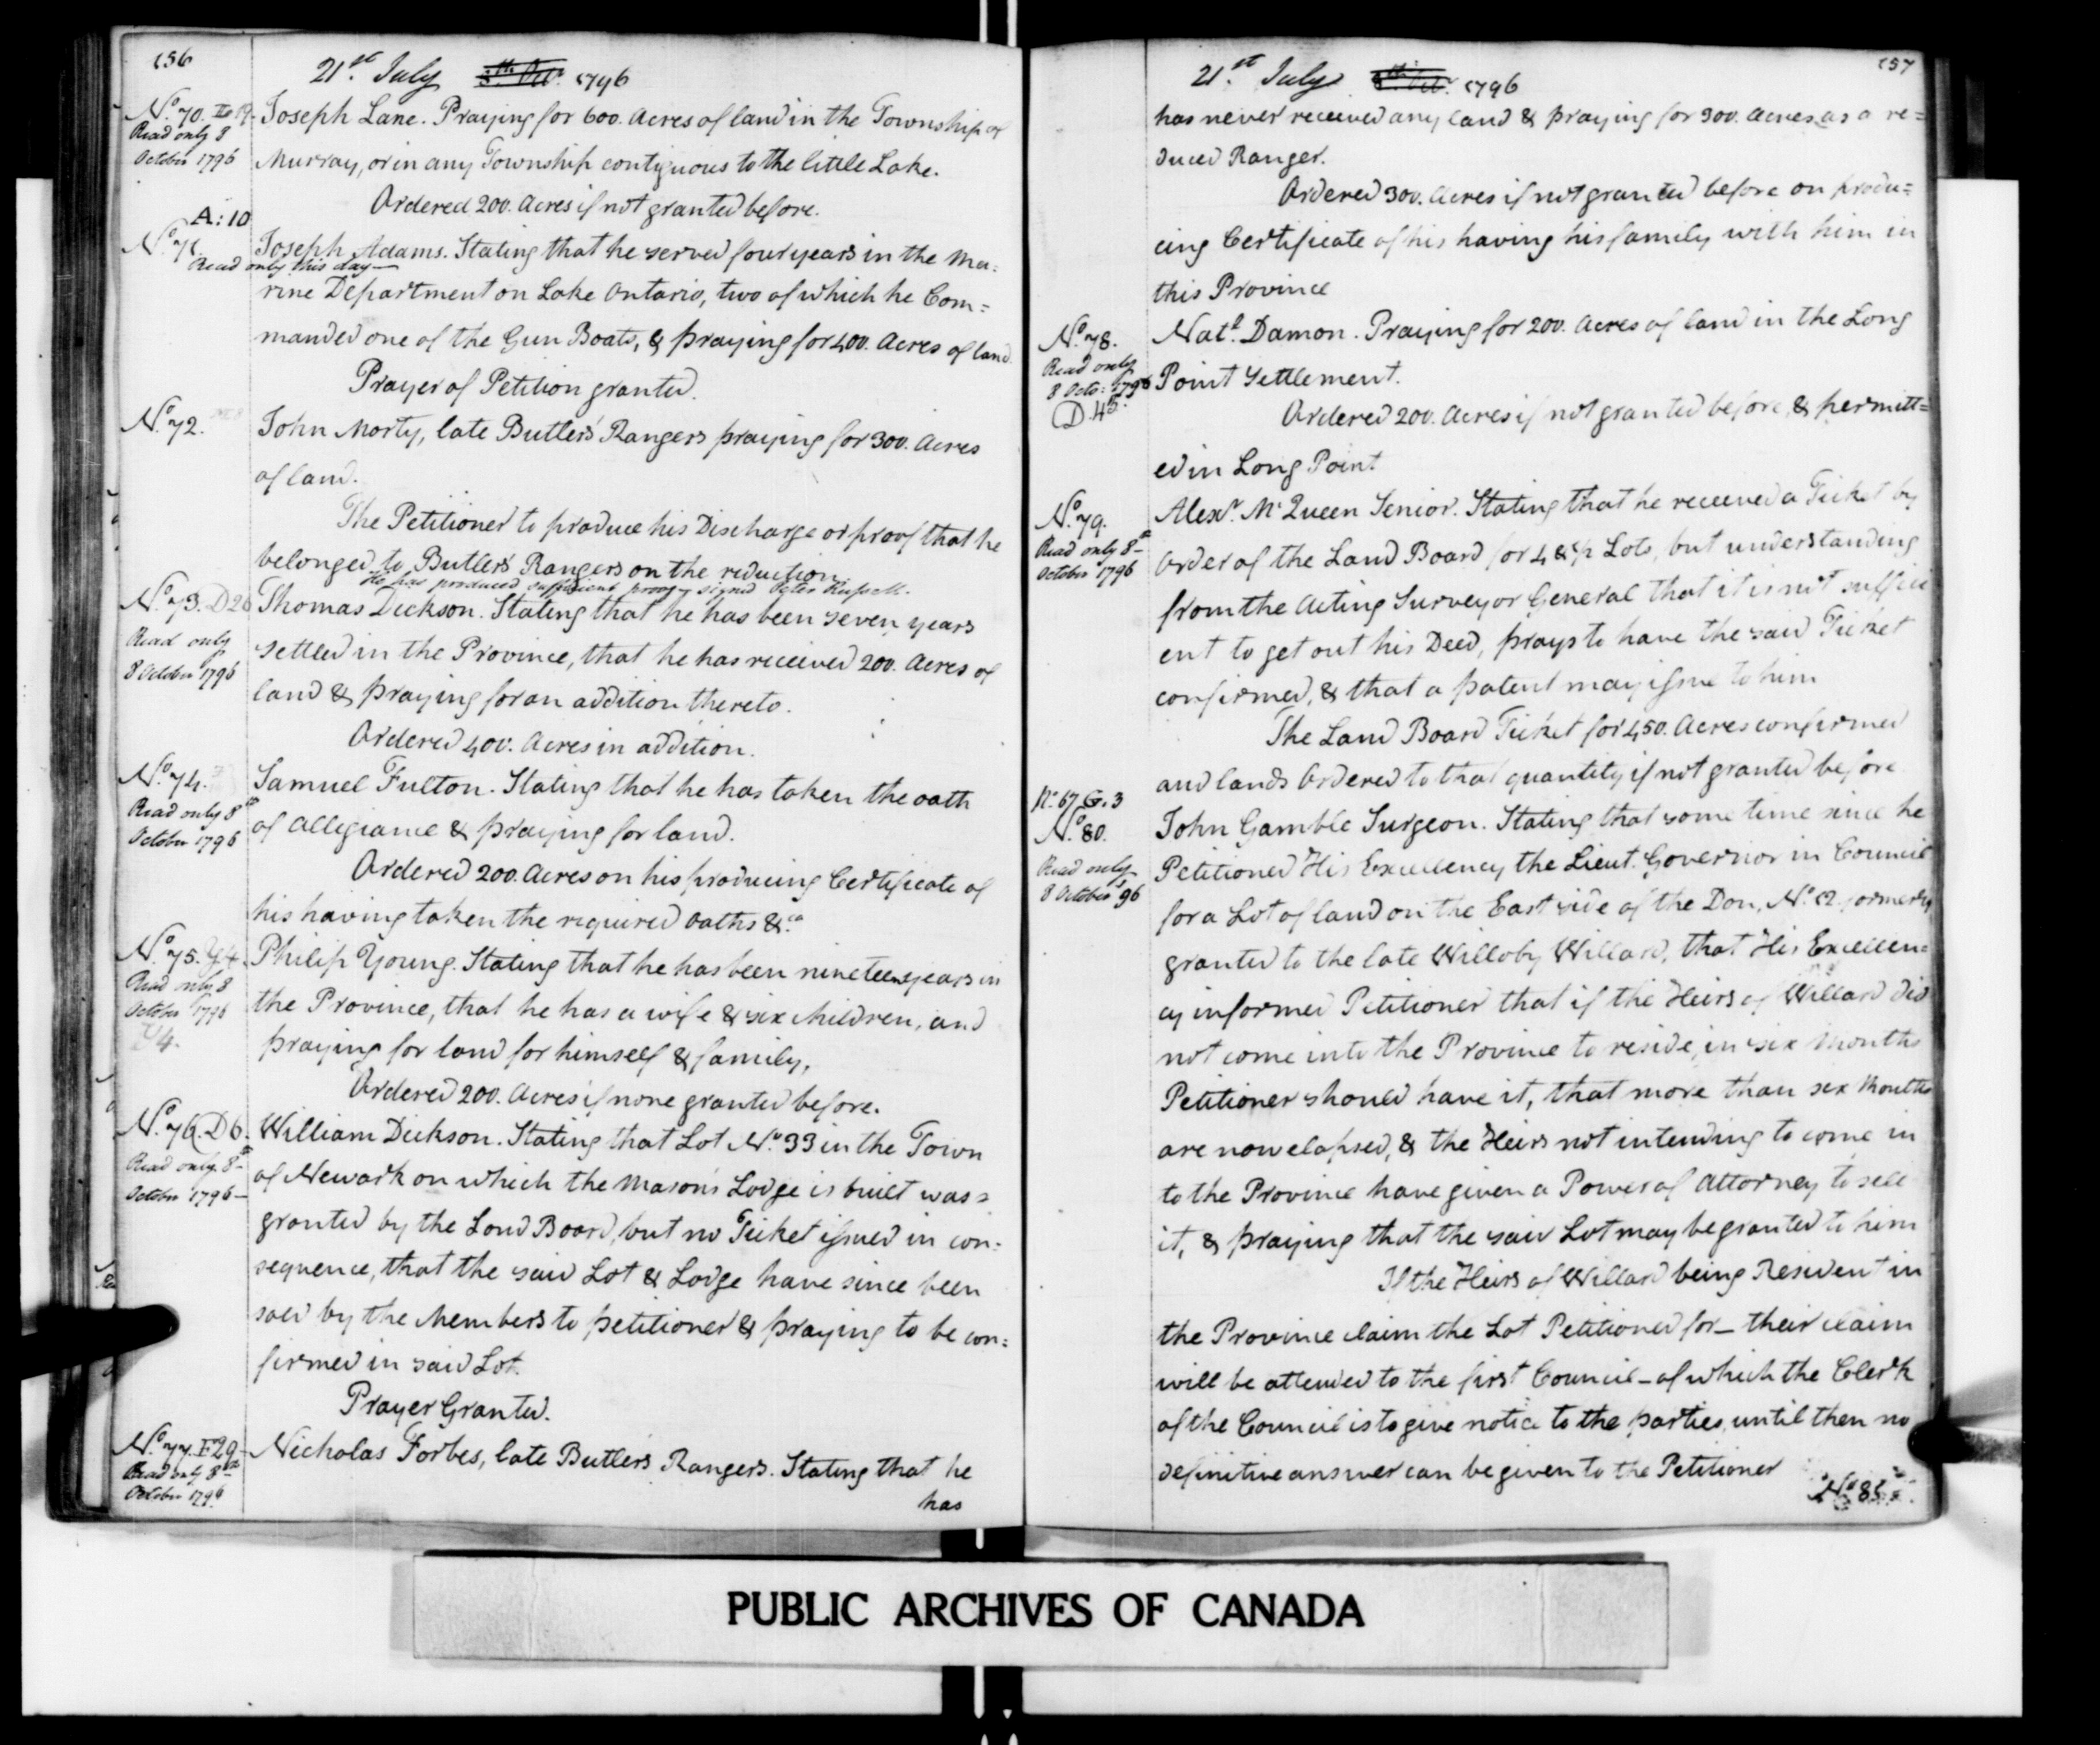 156
21st July 8th Octr 1796
No. 70.
Read only 8
October 1796
Joseph Lane. Praying for 600. Acres of land in the Township of
Murray, or in any Township contiguous to the little Lake.
Ordered 200. Acres if not granted before.
A: 10
No. 71.
Read only this day—
Joseph Adams. Stating that he served four years in the Ma=
rine Department on Lake Ontario, two of which he Com=
manded one of the Gun Boats, & praying for 400. Acres of land
Prayer of Petition granted.
No. 72.
John Morty, late Butlers Rangers praying for 300. Acres
of land.
The Petitioner to produce his Discharge or proof that he
belonged to Butlers Rangers on the reduction.
He has produced sufficient proof signed Peter Russell.
No. 73. D26
Read only
8 October 1796
Thomas Dickson. Stating that he has been seven years
settled in the Province, that he has received 200. Acres of
land & praying for an addition thereto.
Ordered 400. Acres in addition.
No. 74.
Read only 8th
October 1796
Samuel Fulton. Stating that he has taken the oath
of Allegiance & praying for land.
Ordered 200. Acres on his producing Certificate of
his having taken the required oaths &ca
No. 75. Y4
Read only 8
October 1796
Y4.
Philip Young. Stating that he has been nineteen years in
the Province, that he has a wife & six children, and
praying for land for himself & family.
Ordered 200. Acres if none granted before.
No. 76. D6.
Read only 8th
October 1796—
William Dickson. Stating that Lot No. 33 in the Town
of Newark on which the Masons Lodge is built was
granted by the Land Board, but no Ticket issued in con=
sequence, that the said Lot & Lodge have since been
sold by the Members to petitioner & praying to be con=
firmed in said Lot.
Prayer Granted.
No. 77. F29
Read only 8th
October 1796
Nicholas Forbes, late Butlers Rangers. Stating that he
has
157
21st July 8th Octr 1796
has never received any land & praying for 300. Acres as a re=
duced Ranger.
Ordered 300. Acres if not granted before on produ=
cing Certificate of his having his family with him in
this Province
No. 78.
Read only
8 Octo: 1796
D. 45.
Natl. Damon. Praying for 200. Acres of land in the Long
Point Settlement.
Ordered 200. Acres if not granted before, & permitt=
ed in Long Point
No. 79.
Read only 8th
October 1796
Alexr. McQueen Senior. Stating that he received a Ticket by
Order of the Land Board for 4 & ½ Lots, but understanding
from the Acting Surveyor General that it is not suffici
ent to get out his Deed, prays to have the said Ticket
confirmed, & that a patent may issue to him
The Land Board Ticket for 450. Acres confirmed
and lands Ordered to that quantity if not granted before
No. 67 G. 3
No. 80.
Read only
8 October 96
John Gamble Surgeon. Stating that some time since he
Petitioned His Excellency the Lieut. Governor in Council
for a Lot of land on the East side of the Don, No. 12 formerly
granted to the late Willoby Willard, that His Excellen=
cy informed Petitioner that if the Heirs of Willard did
not come into the Province to reside, in six Months
Petitioner should have it, that more than six Months
are now elapsed, & the Heirs not intending to come in
to the Province have given a Power of Attorney to sell
it, & praying that the said Lot may be granted to him
If the Heirs of Willard being Resident in
the Province claim the Lot Petitioned for— their claim
will be attended to the first Council— of which the Clerk
of the Council is to give notice to the parties, until then no
definitive answer can be given to the Petitioner
PUBLIC ARCHIVES OF CANADA